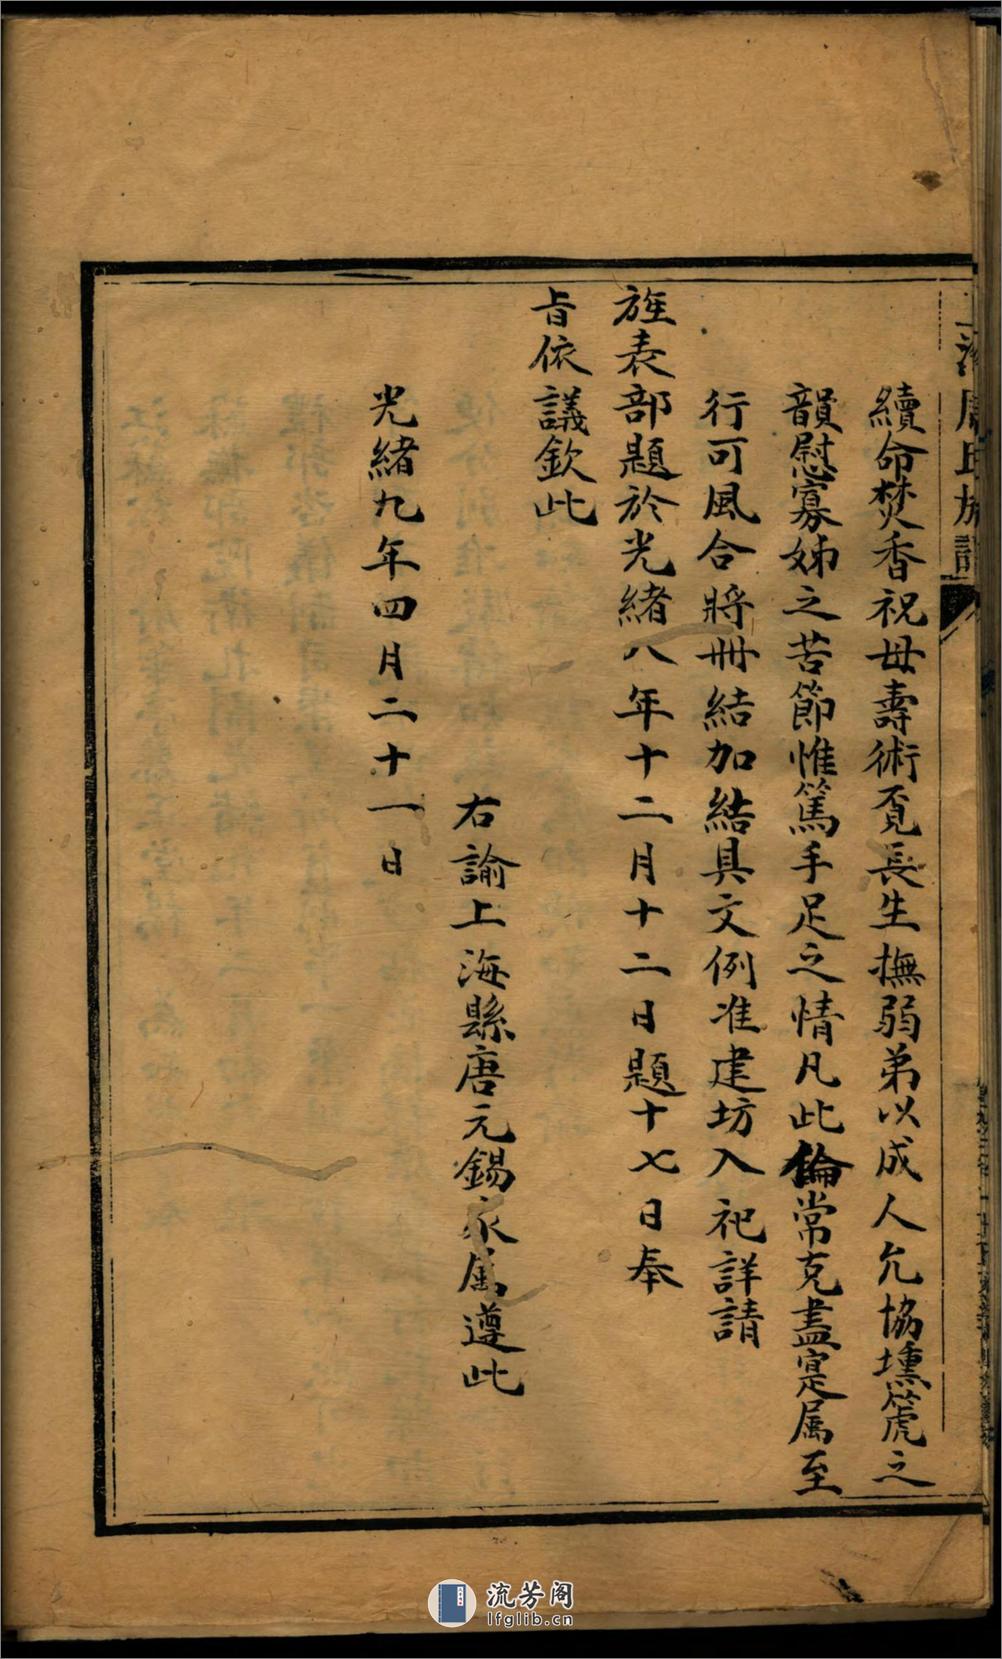 續命焚香祝母壽術覔長生撫弱弟以成人允協壎箎之
韻慰寡姊之苦節惟篤手足之情凡此倫常克盡寔属至
行可風合將冊結加結具文例准建坊入祀詳請
旌表部題於光緒八年十二月十二日題十七日奉
旨依議欽此
右諭上海縣唐元錫家属遵此
光緒九年四月二十一日
流芳阁
lfglib.cn